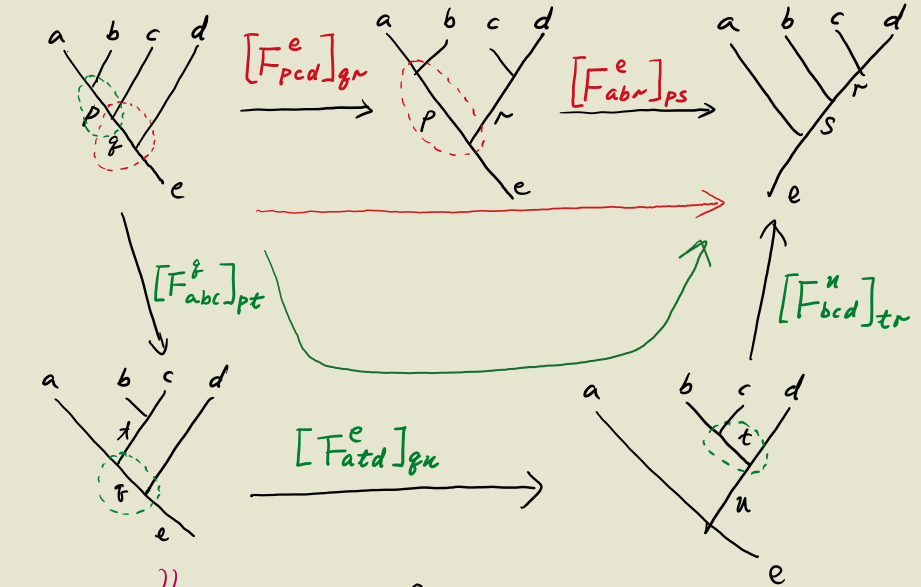 a b c d
[F^e_{pcd}]_{qr}
a b c d
[F^e_{abr}]_{ps}
a b c d
p
q
e
p r
e
r
s
e
[F^q_{abc}]_{pt}
[F^u_{bcd}]_{tr}
a b c d
t
q
e
[F^e_{atd}]_{qu}
a b c d
t
u
e